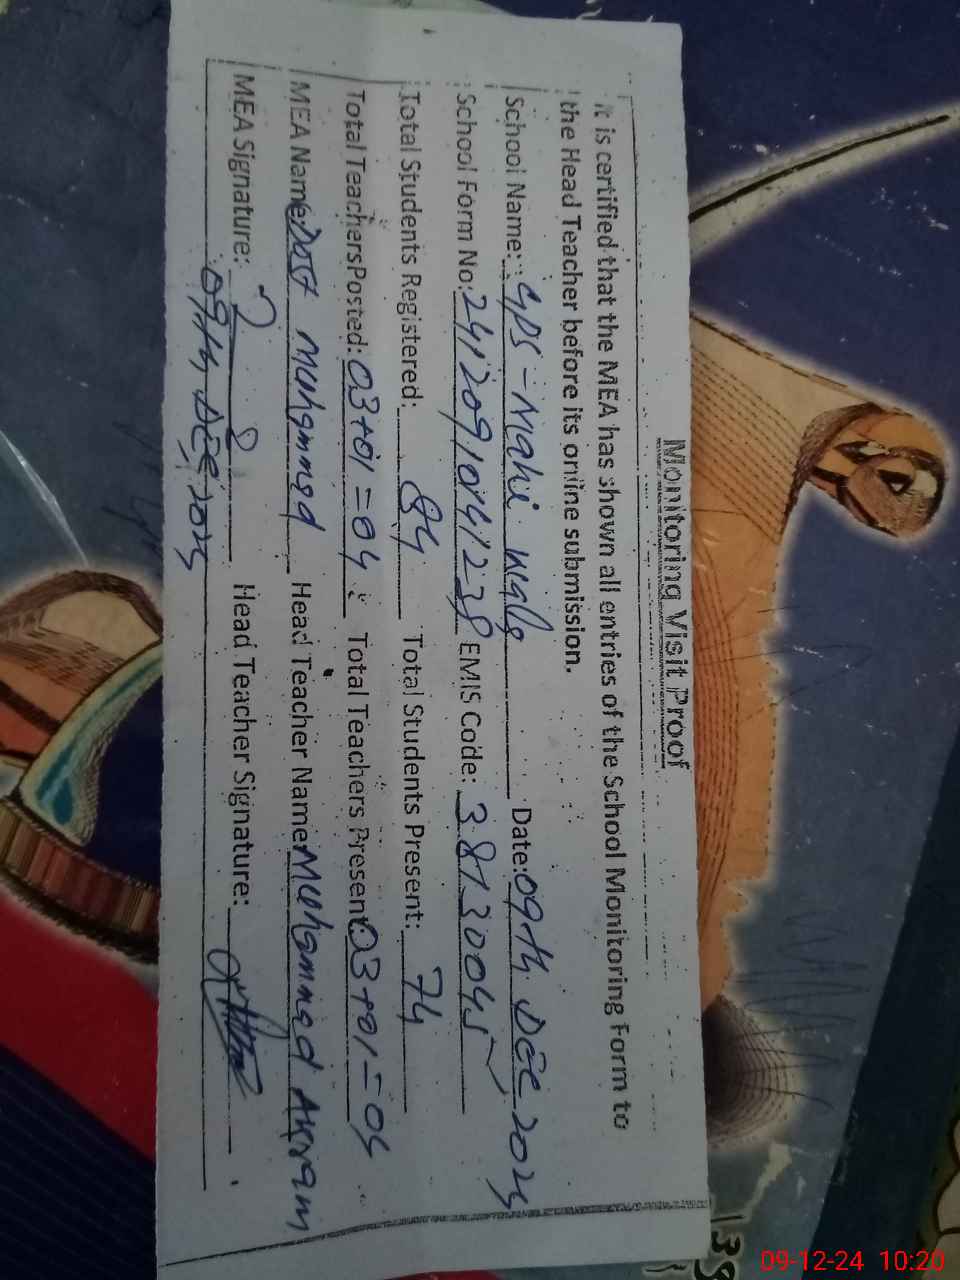 Monitoring Visit Proof
It is certified that the MEA has shown all entries of the School Monitoring Form to
the Head Teacher before its online submission.
School Name: GPS - Mahi Date: 09th DEC 2024
School Form No: 2412091041238 EMIS Code: 38130045
Total Students Registered: 84 Total Students Present: 74
Total Teachers Posted: 03+01=04 Total Teachers Present: 03+01=04
MEA Name: Dost Muhammad Head Teacher Name: Muhammad Akram
MEA Signature: Head Teacher Signature:
09th DEC 2024
09-12-24 10:20